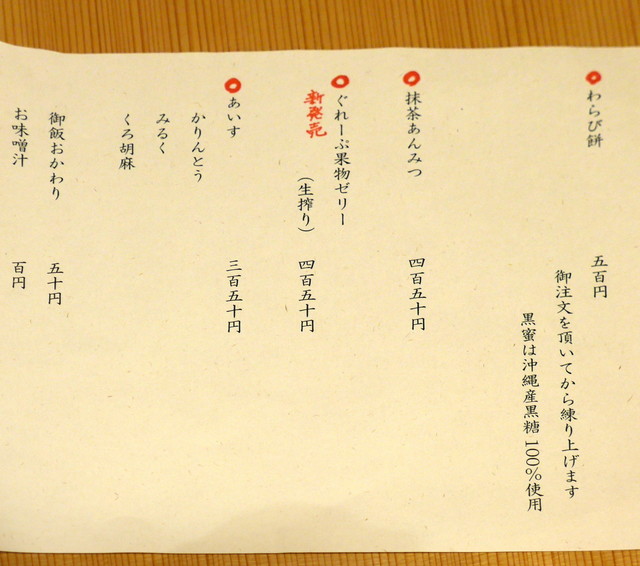 わらび餅 五百円
御注文を頂いてから練り上げます
黒蜜は沖縄産黒糖100%使用
抹茶あんみつ 四百五十円
ぐれーぷ果物ゼリー
新発売 (生搾り) 四百五十円
あいす 三百五十円
かりんとう
みるく
くろ胡麻
御飯おかわり 五十円
お味噌汁 百円